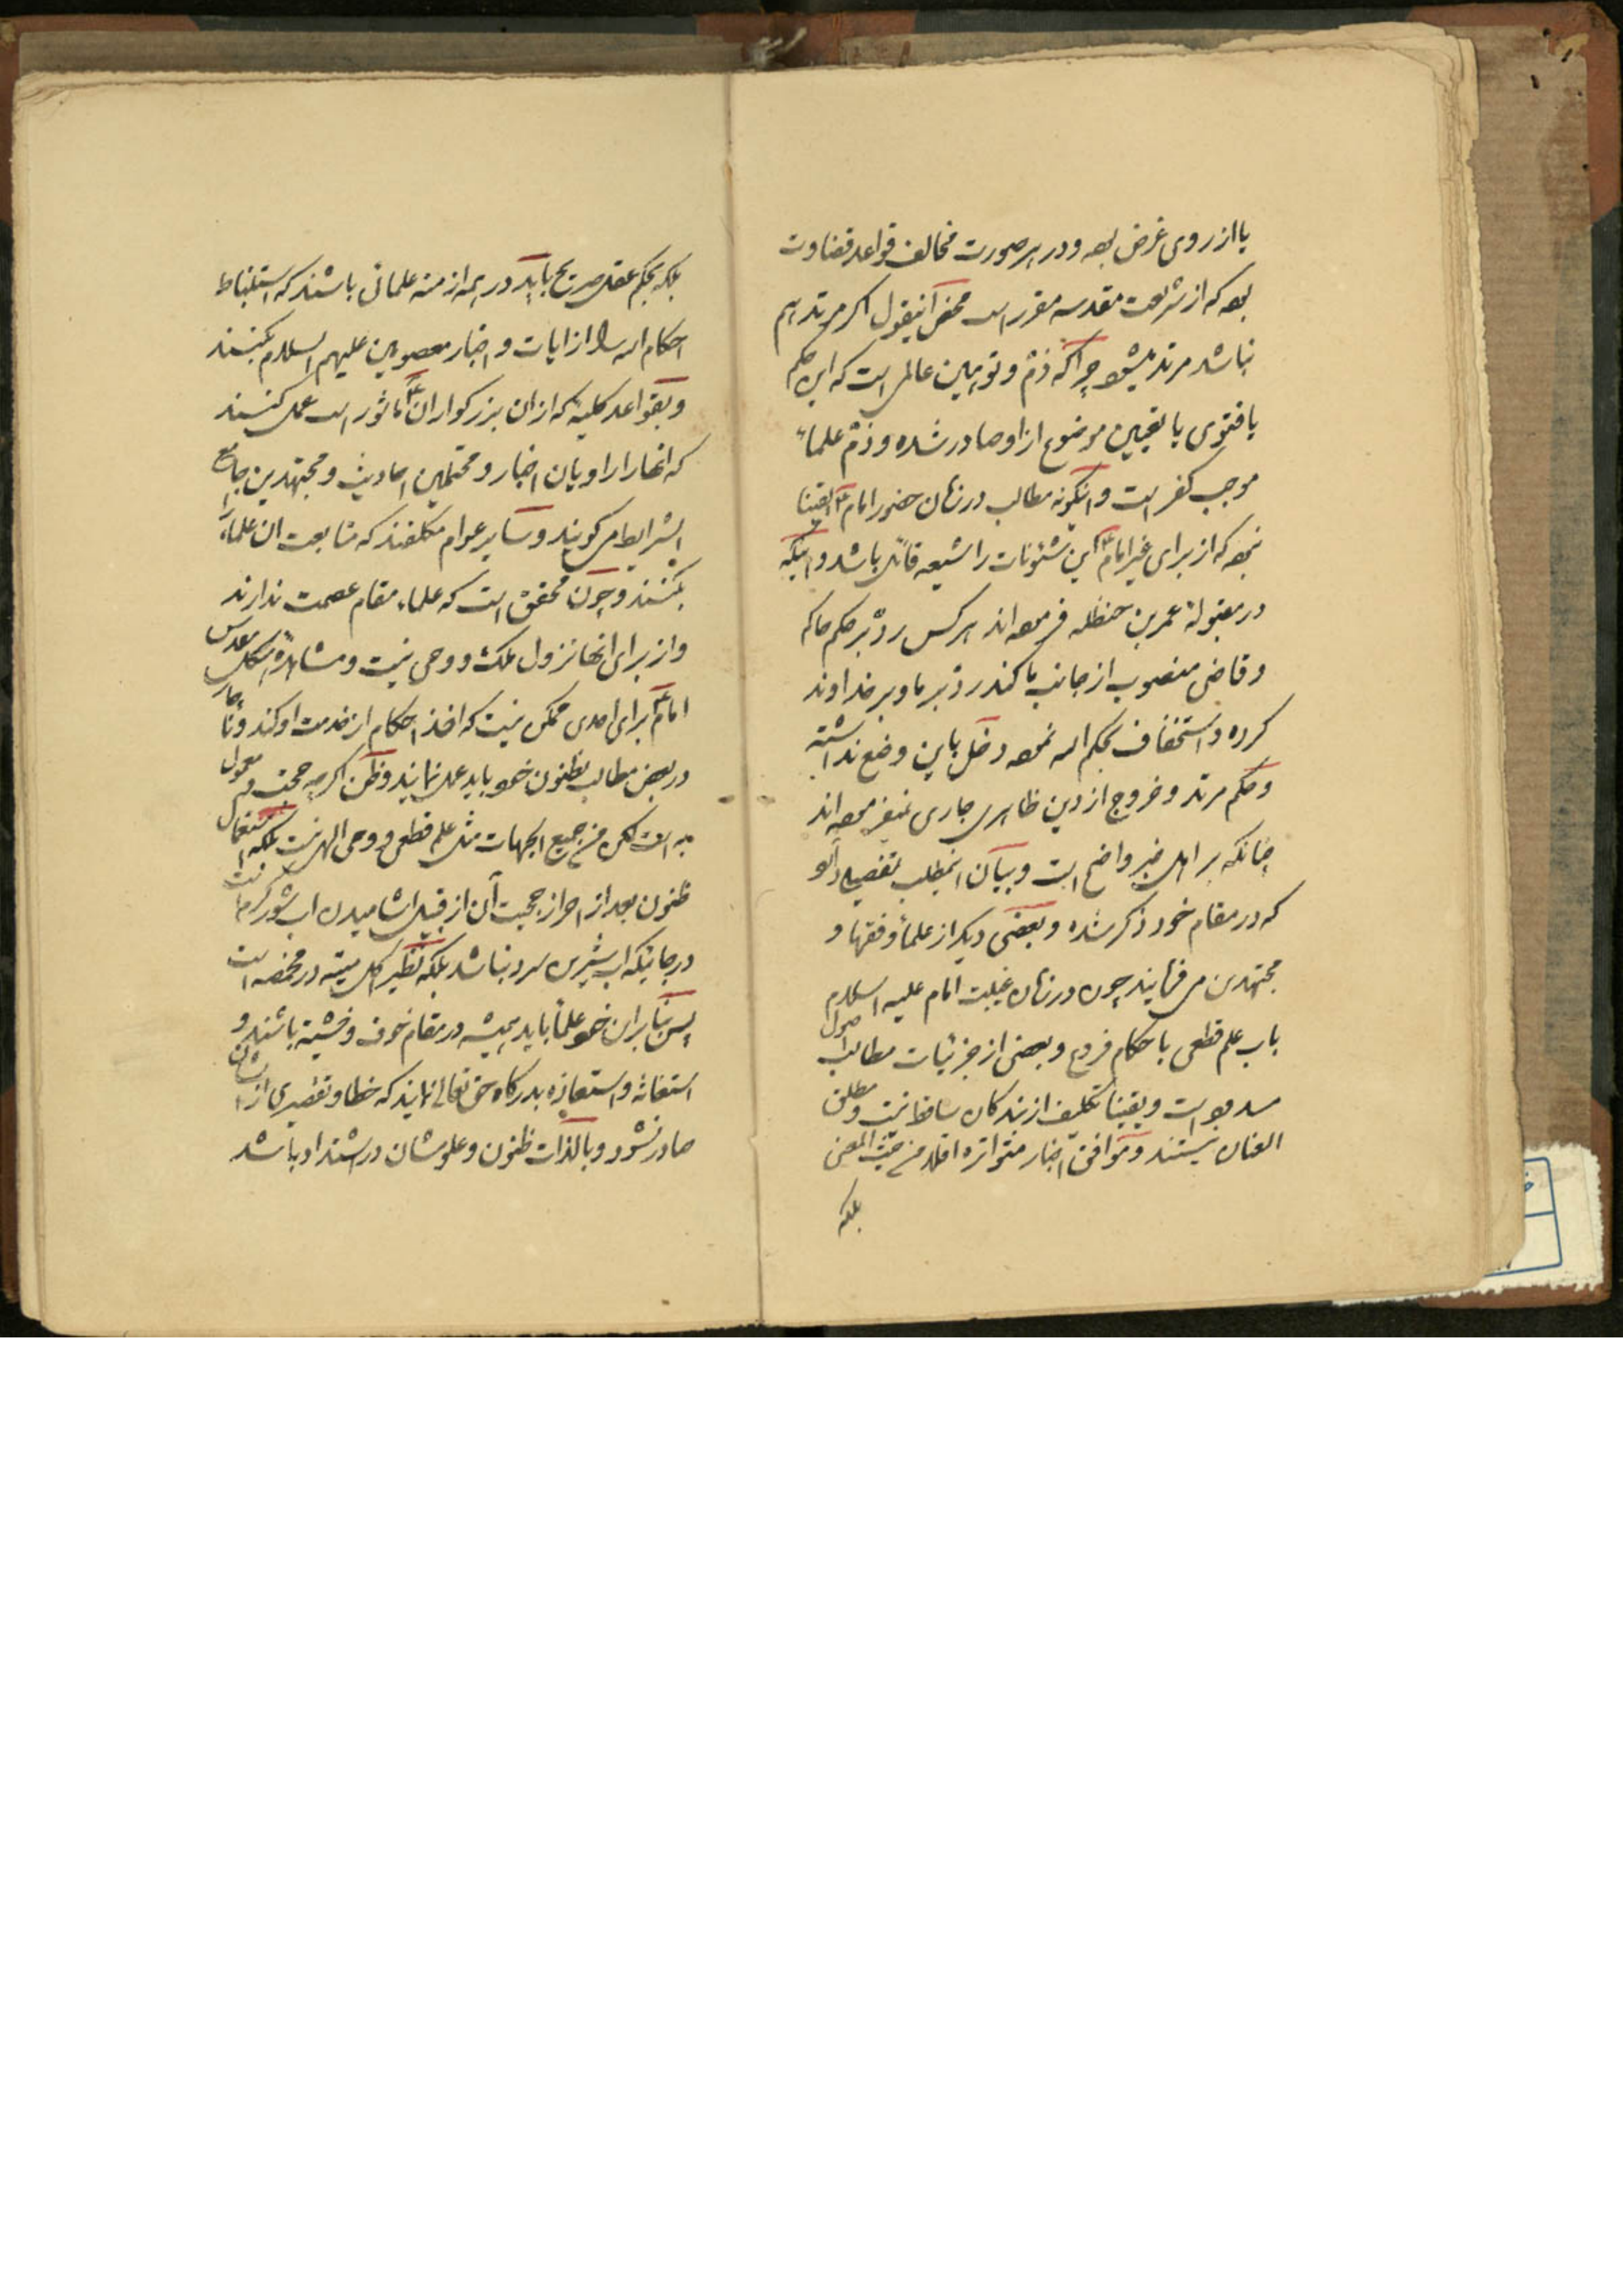 یا از روی غرض بوده و در هر صورت مخالف قواعد قضاوت
بوده که از شریعت مقدسه مقرر است محض اینقول اکر مرتد هم
نباشد مرتد میشود چراکه ذمّ و توهین عالمی است که این حکم
یا فتوی یا تعیین موضوع از او صادر شده و ذمّ علماء
موجب کفر است و اینکونه مطالب در زمان حضور امام ع یقینا
نبوده که از برای غیر امام ع این شئونات را شیعه قائل باشد و اینکه
در مقبولهٔ عمر بن حنظله فرموده‌اند هر کس ردّ بر حکم حاکم
و قاضی منصوب از جانب ما کند ردّ بر ما و بر خداوند
کرده و استخفاف بحکم الله نموده دخل باین وضع نداشته
و حکم مرتد و خروج از دین ظاهری جاری نمیفرموده‌اند
چنانکه بر اهل خبر واضح است و بیان اینمطلب تفصیلی دارد
که در مقام خود ذکر شده و بعضی دیکر از علماء و فقها و
مجتهدین می فرمایند چون در زمان غیبت امام علیه السلام
باب علم قطعی باحکام فروع و بعضی از جزئیات مطالب اصول
مسدود است و یقینا تکلیف از بندکان ساقط نیست و مطلق
العنان نیستند و موافق اخبار متواتره اقلا من حیث المعنی
بلکه
بلکه بحکم عقل صریح باید در همه ازمنه علمائی باشند که استنباط
احکام الله را از ایات و اخبار معصومین علیهم السلام بکنند
و بقواعد کلیه که از ان بزرکواران ع ماثور است عمل کنند
که انها را راویان اخبار و محتملین احادیث و مجتهدین جامع
الشرایط می کویند و سایر عوام مکلفند که متابعت ان علماء را
بکنند و چون محقق است که علماء مقام عصمت ندارند
و از برای انها نزول ملک و وحی نیست و مشاهدهٔ هیکل مقدس
امام ع برای احدی ممکن نیست که اخذ احکام از خدمت او کند و ناچار
در بعض مطالب بظنون خود باید عمل نمایند و ظن اکرچه حجت و معمول
به است لکن من جمیع الجهات مثل علم قطعی و وحی الهی نیست بلکه استعمال
ظنون بعد از احراز حجیت آن از قبیل اشامیدن اب شور کرم است
در جائیکه اب شیرین سرد نباشد بلکه نظیر اکل میته در مخمصه است
پس بنابران خود علماء باید همیشه در مقام خوف و خشیة باشند و
استغاثه و استعاذه بدرکاه حق تعالی نمایند که خطا و تقصیری از ایشان
صادر نشود و بالذات ظنون و علومشان در اشتداد باشد